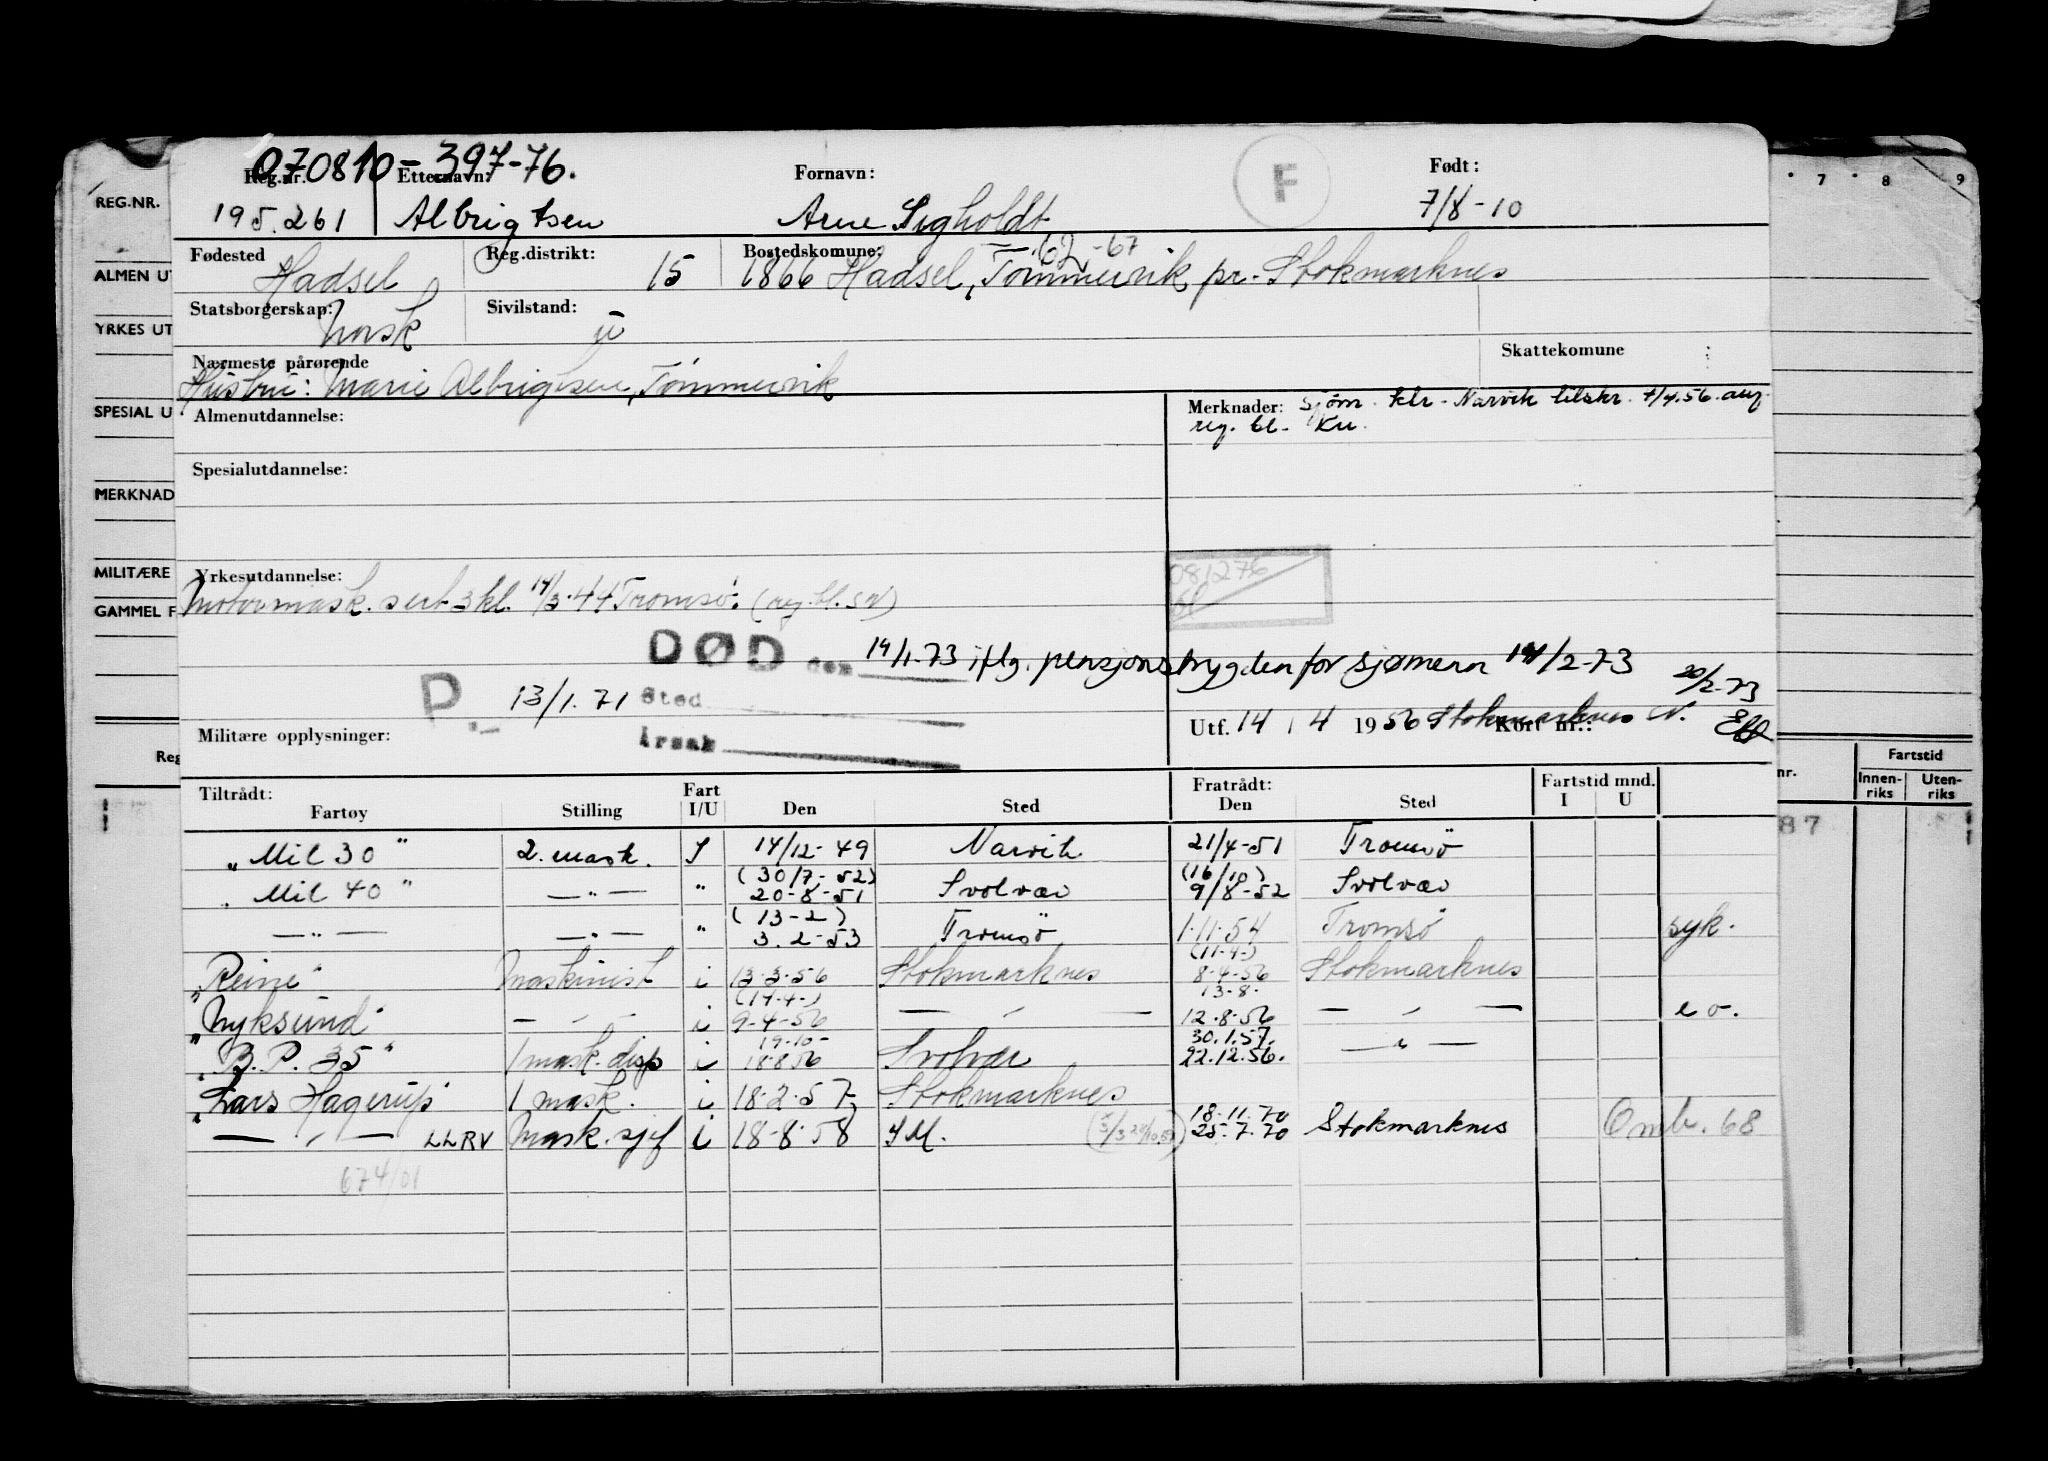 070810-397-76.
REG.NR. Reg.nr. Etternavn: Fornavn: F Født: 7 8 9
195.261 Albrigtsen Arne Sigholdt 7/8-10
Fødested Reg.distrikt: Bostedskomune: -67
ALMEN UT Hadsel 15 1866 Hadsel, Tömmervik pr. Stokmarknes
Statsborgerskap: Sivilstand:
YRKES UT Norsk
Nærmeste pårørende Skattekomune
Hustru: Marie Albrigtsen, Tömmervik
SPESIAL U Almenutdannelse: Merknader: Sjöm. klr. Narvik tilskr. 7/4.56. ang.
reg. bl. Ku.
Spesialutdannelse:
MERKNAD
MILITÆRE Yrkesutdannelse: 081276
GAMMEL F Motormask. sert. 3 kl. 14/3.44 Tromsö. (reg.bl. SN)
DØD den 14/1-73 iflg. pensjonstrygden for sjømenn 14/2-73
P. 13/1.71 Sted 20/2-73
Militære opplysninger: Årsak Utf. 14 / 4 1956 Stokmarknes N. Kort nr.:
Reg nr. Fartstid
Innen-riks Uten-riks
Tiltrådt: Fart Fratrådt: Fartstid mnd.
Fartøy Stilling I/U Den Sted Den Sted I U
87
"Mil 30" 2. mask. I 14/12-49 Narvik 21/4-51 Tromsö
(30/7-52) (16/10)
"Mil 40" —"— " 20-8-51 Svolvær 9/8-52 Svolvær
(13-2)
—"— —"— " 3.2-53 Tromsö 1.11.54 Tromsö syk.
(11-4-)
"Reine" Maskinist i 13.3.56 Stokmarknes 8-4-56 Stokmarknes
(14-4-) 13-8-
"Nyksund" —"— i 9-4-56 —"— 12.8.56 —"— e o.
19-10- 30.1.57.
"B.P. 35" 1 mask. disp i 18.8.56 Svolvær 22.12.56. —"—
"Lars Hagerup" 1 mask. i 18.2.57 Stokmarknes
18.11.70
—"— LLRV Mask.sjef i 18-8-58 25.7.70 Stokmarknes Omb. 68
674/01